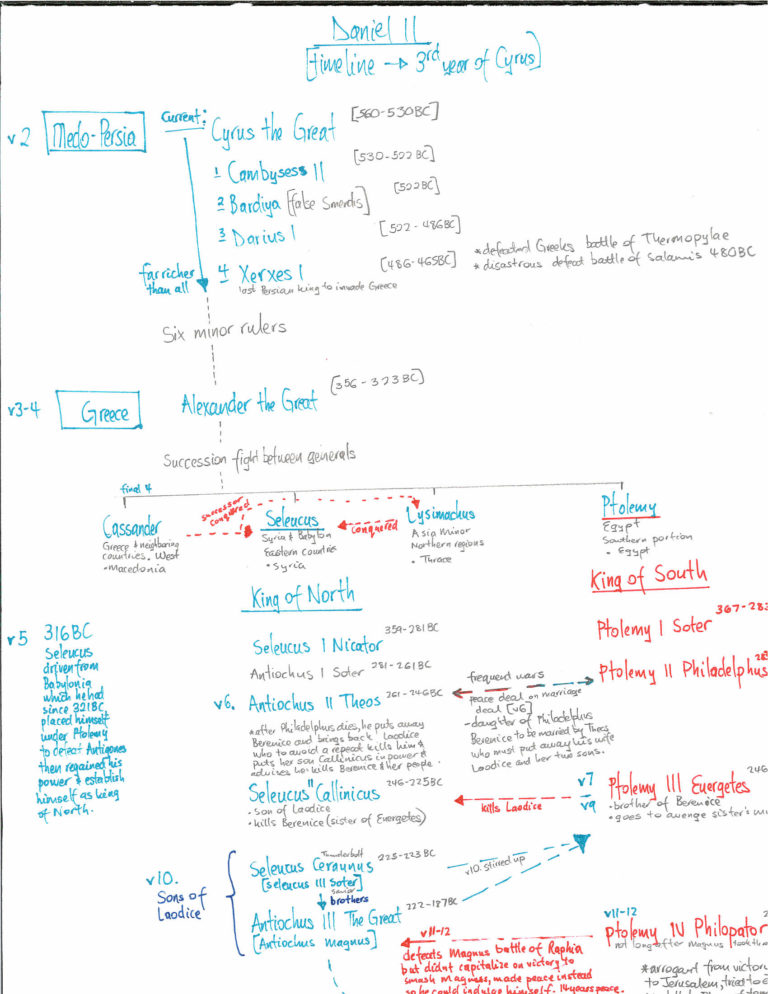 Daniel 11
[timeline → 3rd year of Cyrus]
v2 Medo-Persia
Current: Cyrus the Great [560-530BC]
1 Cambysess II [530-522 BC]
2 Bardiya [false Smerdis] [522BC]
3 Darius I [522-486BC]
far richer than all
4 Xerxes I [486-465BC]
last Persian king to invade Greece
*defeated Greeks battle of Thermopylae
*disastrous defeat battle of Salamis 480BC
Six minor rulers
v3-4 Greece
Alexander the Great [356-323BC]
Succession fight between generals
final 4
Cassander
Greece & neighboring
countries. West
•Macedonia
successor
conquered
Seleucus
Syria & Babylon
Eastern countrie
•Syria
conquered
Lysimachus
Asia Minor
Northern regions
• Thrace
Ptolemy
Egypt
Southern portion
• Egypt
King of North
King of South
v5 316BC
Seleucus
driven from
Babylonia
which he had
since 321BC
placed himself
under Ptolemy
to defeat Antigones
then regained his
power & establish
himself as king
of North.
Seleucus I Nicator 359-281BC
Ptolemy I Soter 367-283
Antiochus I Soter 281-261BC
v6. Antiochus II Theos 261-246BC
frequent wars
Ptolemy II Philadelphus
peace deal on marriage
deal [v6]
-daughter of Philadelphus
Berenice to be married by Theos
who must put away his wife
Laodice and her two sons.
*after Philadelphus dies, he puts away
Berenice and brings back Laodice
who to avoid a repeat kills him &
puts her son Callinicus in power &
advises he kills Berenice & her people.
Seleucus II Callinicus 246-225BC
• son of Laodice
• kills Berenice (sister of Euergetes)
kills Laodice
v7
v9
Ptolemy III Euergetes 246
•brother of Berenice
•goes to avenge sister's
v10.
Sons of
Laodice
Thunderbolt
Seleucus Ceraunus 225-223BC
[Seleucus III Soter]
Savior
brothers
v10. stirred up
Antiochus III The Great 222-187BC
[Antiochus Magnus]
v11-12
defeats Magnus battle of Raphia
but didnt capitalize on victory to
smash Magnus, made peace instead
so he could indulge himself. 14 years peace.
v11-12
Ptolemy IV Philopator
not long after Magnus took
*arrogant from victor
to Jerusalem, tried to